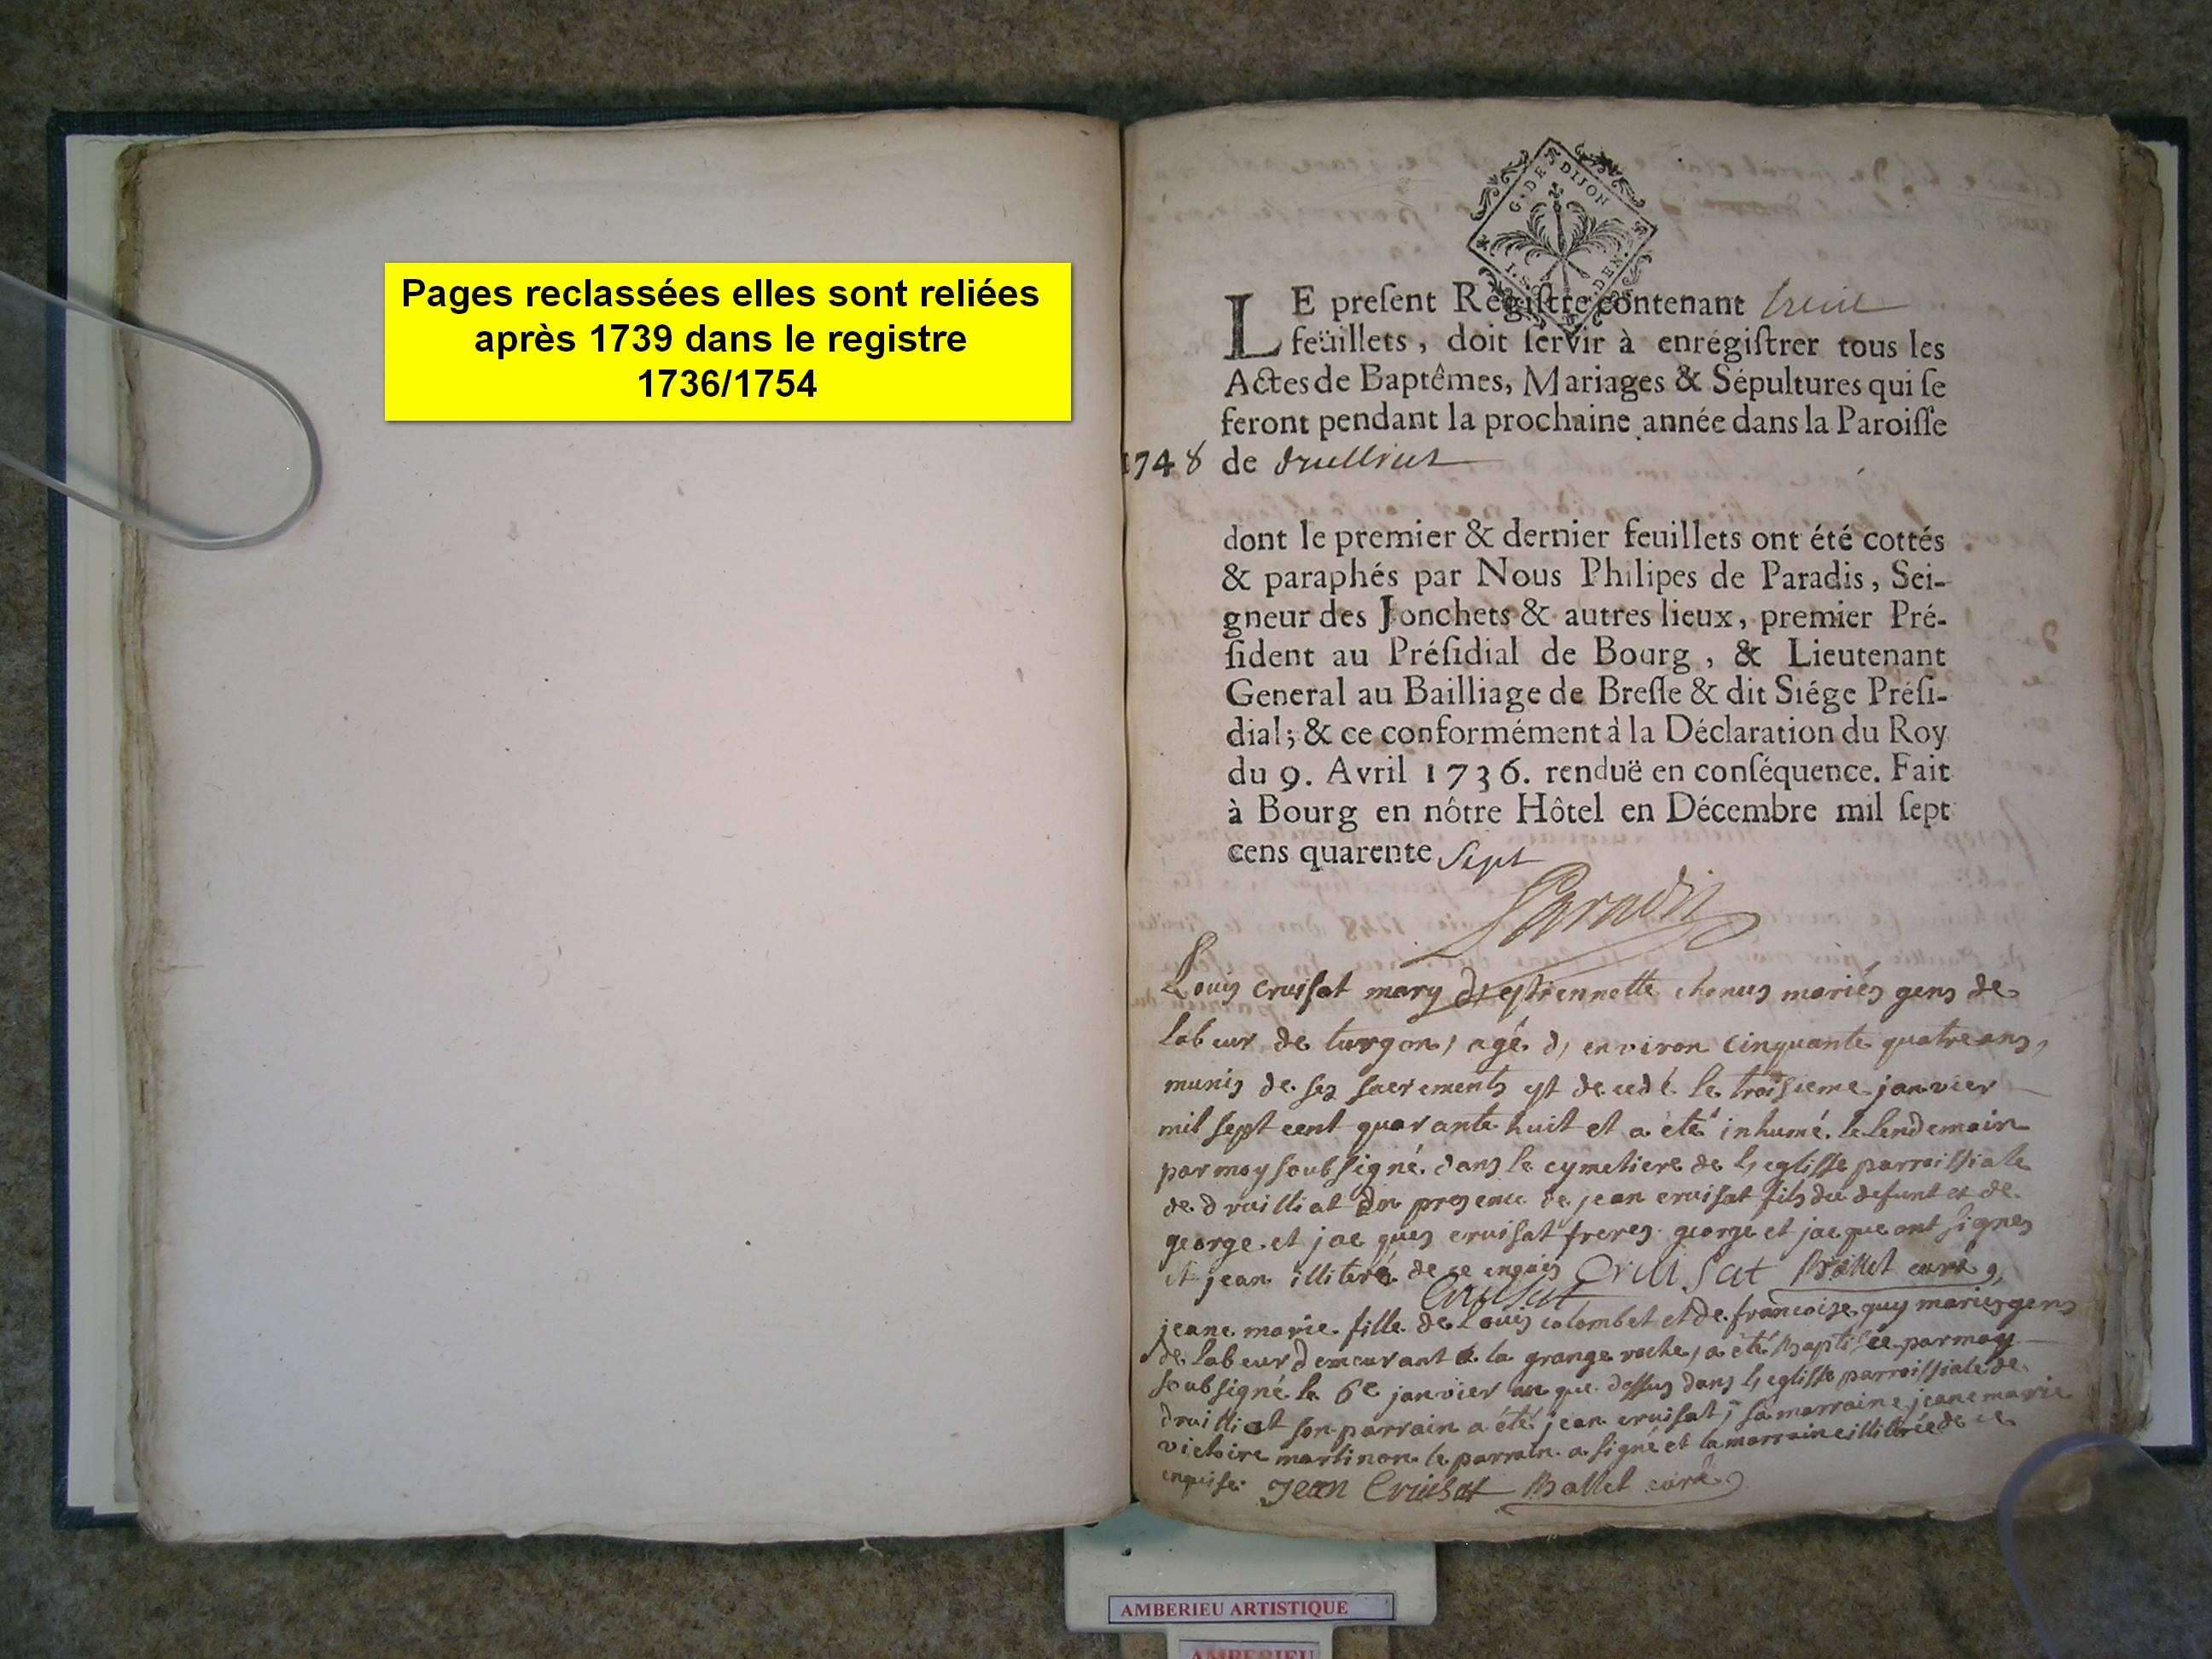 Pages reclassées elles sont reliées
après 1739 dans le registre
1736/1754
G. DE DIJON
LE preſent Regiſtre contenant
feüillets, doit ſervir à enrégiſtrer tous les
Actes de Baptêmes, Mariages & Sépultures qui ſe
feront pendant la prochaine année dans la Paroiſſe
1748 de druilliat
dont le premier & dernier feuillets ont été cottés
& paraphés par Nous Philipes de Paradis, Sei-
gneur des Jonchets & autres lieux, premier Pré-
ſident au Préſidial de Bourg, & Lieutenant
General au Bailliage de Breſſe & dit Siége Préſi-
dial; & ce conformément à la Déclaration du Roy
du 9. Avril 1736. renduë en conſéquence. Fait
à Bourg en nôtre Hôtel en Décembre mil ſept
cens quarente sept
Paradis
Louis cruisat mary d'estiennette chenus mariés gens de
labeur de turgon, agé d, environ cinquante quatre ans,
munis de ses sacrements est decedé le troisieme janvier
mil sept cent quarante huit et a été inhumé le lendemain
par moy soubsigné dans le cymetiere de l, eglisse parroissiale
de druilliat en presence de jean cruisat fils du defunt et de
george et jacques cruisat freres george et jacque ont signés
et jean illiteré de ce enquis Cruisat Ballet curé
Cruisat
jeane marie fille de Louis colombet et de francoise guy mariés gens
de labeur demeurant a la grange roche, a été baptisée par moy
soubsigné le 6e janvier an que dessus dans l, eglisse parroissiale de
druilliat son parrain a été jean cruisat, sa marraine jeane marie
victoire martinon le parrain a signé et la marraine illiterée de ce
enquise Jean Cruisat Ballet curé
AMBERIEU ARTISTIQUE
AMBERIEU